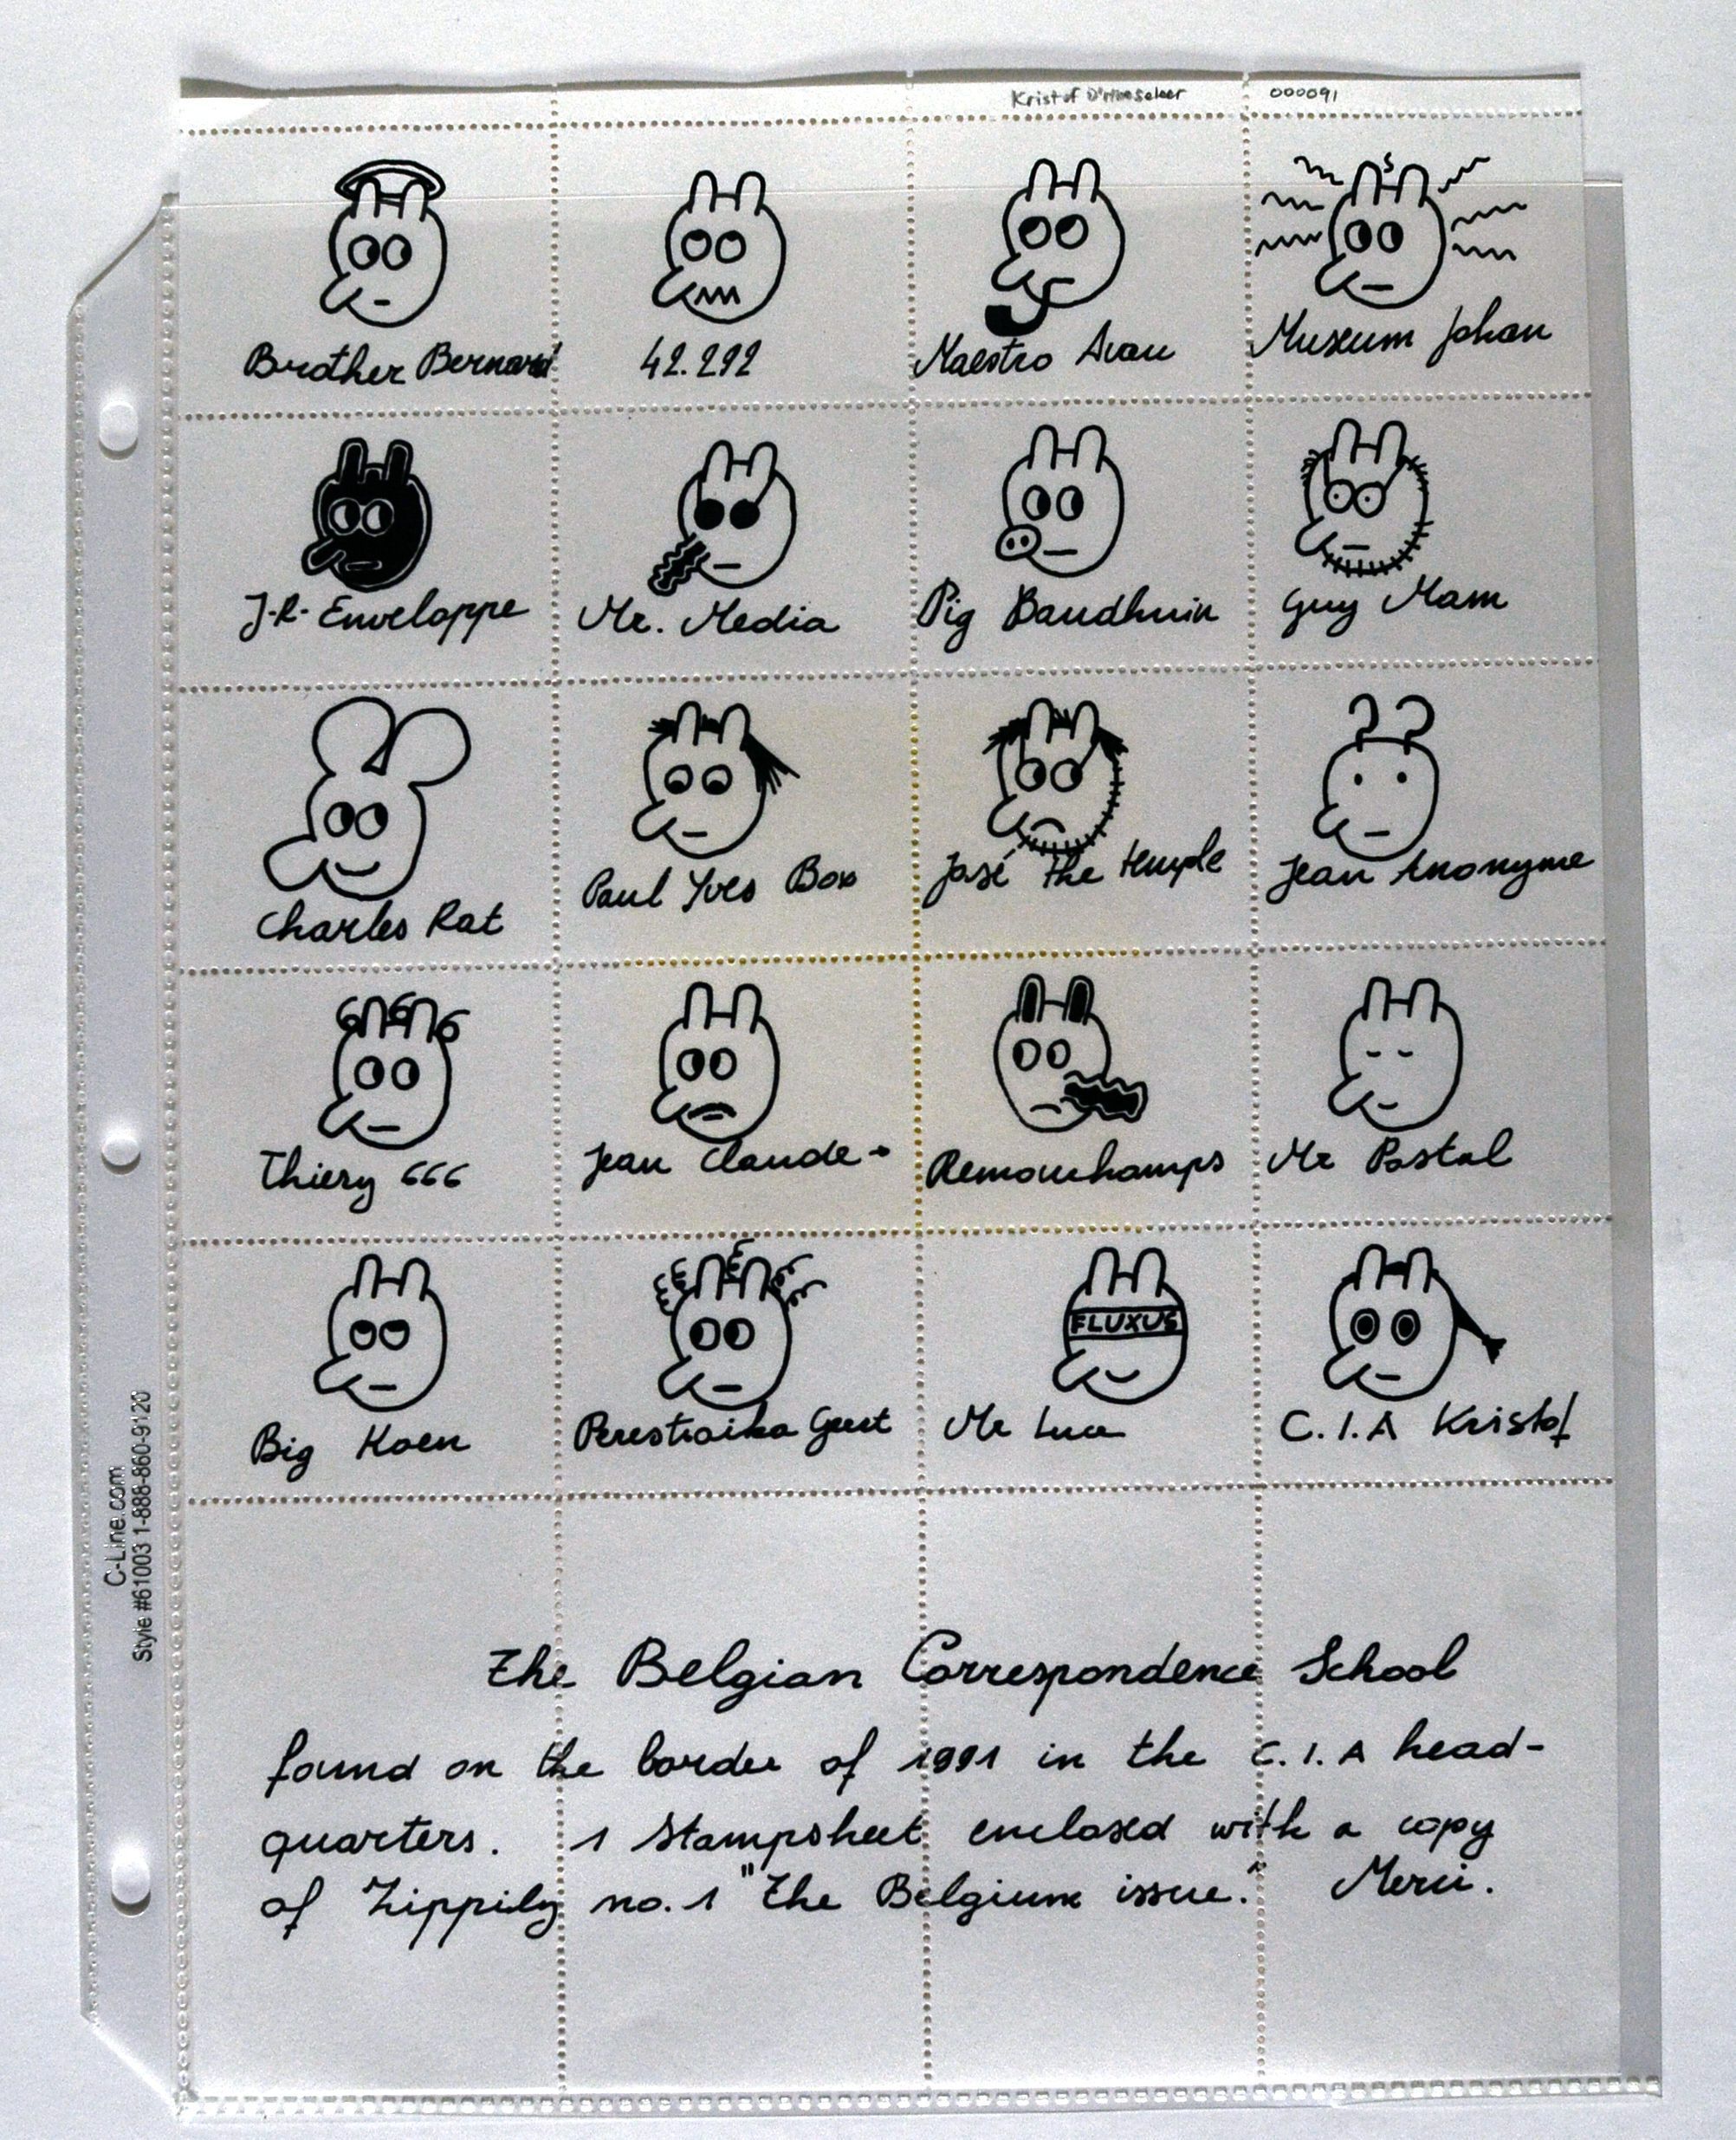 Kristof 000091
Brother Bernard 42.292 Maestro Avau Museum Johan
J-R- Enveloppe Mr. Media Pig Baudhuin Guy Mam
Charles Rat Paul Yves Box José the temple Jean Anonyme
666
Thiery 666 Jean Claude - Remouchamps Mr Postal
FLUXUS
Big Koen Perestroika Geert Mr Luce C.I.A Kristof
The Belgian Correspondence School
found on the border of 1991 in the C.I.A head-
quarters. 1 Stampsheet enclosed with a copy
of Zippily no. 1 "the Belgium issue." Merci.
C-Line.com
Style #61003 1-888-860-9120